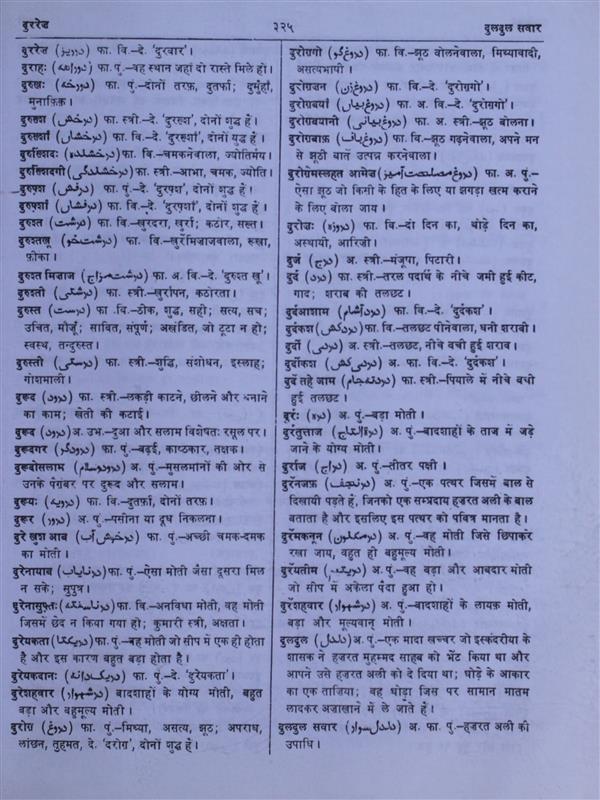 दुररेज
३२५
दुलदुल सवार
दुररेज (درریز) फा. वि.–दे. 'दुरबार'।
दुराहः (دوراهه) फा. पुं.–वह स्थान जहां दो रास्ते मिले हों।
दुरुखः (دورخه) फा. पुं.–दोनों तरफ़, दुतर्फा; दुमुंहां,
मुनाफ़िक़।
दुरुख़्श (درخش) फा. स्त्री.–दे. 'दुरख़्श', दोनों शुद्ध हैं।
दुरुख़्शां (درخشاں) फा. वि.–दे. 'दुरख़्शां', दोनों शुद्ध हैं।
दुरुख़्शिंदः (درخشنده) फा. वि.–चमकनेवाला, ज्योतिर्मय।
दुरुख़्शिंदगी (درخشندگی) फा. स्त्री.–आभा, चमक, ज्योति।
दुरुफ़्श (درفش) फा. पुं.–दे. 'दुरफ़्श', दोनों शुद्ध हैं।
दुरुफ़्शां (درفشاں) फा. वि.–दे. 'दुरफ़्शां', दोनों शुद्ध हैं।
दुरुश्त (درشت) फा. वि.–खुरदरा, खुर्रा; कठोर, सख्त।
दुरुश्तख़ू (درشت خو) फा. वि.–खुर्रामिजाजवाला, रूखा,
फ़ीका।
दुरुश्त मिज़ाज (درشت مزاج) फा. अ. वि.–दे. 'दुरुश्त खू'।
दुरुश्ती (درشتی) फा. स्त्री.–खुर्रापन, कठोरता।
दुरुस्त (درست) फा वि.–ठीक, शुद्ध, सही; सत्य, सच;
उचित, मौजूं; साबित, संपूर्ण; अखंडित, जो टूटा न हो;
स्वस्थ, तन्दुरुस्त।
दुरुस्ती (درستی) फा. स्त्री.–शुद्धि, संशोधन, इस्लाह;
गोशमाली।
दुरूद (درود) फा. स्त्री.–लकड़ी काटने, छीलने और बनाने
का काम; खेती की कटाई।
दुरूद (درود) अ. उभ.–दुआ और सलाम विशेषतः रसूल पर।
दुरूदगर (درودگر) फा. पुं.–बढ़ई, काष्ठकार, तक्षक।
दुरूदोसलाम (درودوسلام) अ. पुं.–मुसलमानों की ओर से
उनके पैग़ंबर पर दुरूद और सलाम।
दुरूयः (درویه) फा. वि.–दुतर्फ़ा, दोनों तरफ़।
दुरूर (درور) अ. पुं.–पसीना या दूध निकलना।
दुरे ख़ुश आब (درخوش آب) फा. पुं.–अच्छी चमक-दमक
का मोती।
दुरेनायाब (درنایاب) फा. पुं.–ऐसा मोती जैसा दूसरा मिल
न सके; सुपुत्र।
दुरेनासुफ़्तः (درناسفته) फा. वि.–अनविधा मोती, वह मोती
जिसमें छेद न किया गया हो; कुमारी स्त्री, अक्षता।
दुरेयकता (دریکتا) फा. पुं.–वह मोती जो सीप में एक ही होता
है और इस कारण बहुत बड़ा होता है।
दुरेयकदानः (دریکدانه) फा. पुं.–दे. 'दुरेयकता'।
दुरेशहवार (درشہوار) बादशाहों के योग्य मोती, बहुत
बड़ा और बहुमूल्य मोती।
दुरोग़ (دروغ) फा. पुं.–मिथ्या, असत्य, झूठ; अपराध,
लांछन, तुहमत, दे. 'दरोग़', दोनों शुद्ध हैं।
दुरोग़गो (دروغ گو) फा. वि.–झूठ बोलनेवाला, मिथ्यावादी,
असत्यभाषी।
दुरोग़ज़न (دروغ زن) फा. वि.–दे. 'दुरोग़गो'।
दुरोग़बयां (دروغ بیاں) फा. अ. वि.–दे. 'दुरोग़गो'।
दुरोग़बयानी (دروغ بیانی) फा. अ. स्त्री.–झूठ बोलना।
दुरोग़बाफ़ (دروغ باف) फा. वि.–झूठ गढ़नेवाला, अपने मन
से झूठी बातें उत्पन्न करनेवाला।
दुरोग़ेमस्लहत आमेज़ (دروغ مصلحت آمیز) फा. अ. पुं.–
ऐसा झूठ जो किसी के हित के लिए या झगड़ा खत्म कराने
के लिए बोला जाय।
दुरोज़ः (دروزه) फा. वि.–दो दिन का, थोड़े दिन का,
अस्थायी, आरिज़ी।
दुर्ज (درج) अ. स्त्री.–मंजूषा, पिटारी।
दुर्द (درد) फा. स्त्री.–तरल पदार्थ के नीचे जमी हुई कीट,
गाद; शराब की तलछट।
दुर्दआशाम (دردآشام) फा. वि.–दे. 'दुर्दकश'।
दुर्दकश (دردکش) फा. वि.–तलछट पीनेवाला, घनी शराबी।
दुर्दी (دردی) अ. स्त्री.–तलछट, नीचे बची हुई शराब।
दुर्दीकश (دردی کش) अ. फा. वि.–दे. 'दुर्दकश'।
दुर्दे तहे जाम (دردته جام) फा. स्त्री.–पियाले में नीचे बची
हुई तलछट।
दुर्रः (دره) अ. पुं.–बड़ा मोती।
दुर्रतुत्ताज (درةالتاج) अ. पुं.–बादशाहों के ताज में जड़े
जाने के योग्य मोती।
दुर्राज (دراج) अ. पुं.–तीतर पक्षी।
दुर्रेनजफ़ (درنجف) अ. पुं.–एक पत्थर जिसमें बाल से
दिखायी पड़ते हैं, जिनको एक सम्प्रदाय हज़रत अली के बाल
बताता है और इसलिए इस पत्थर को पवित्र मानता है।
दुर्रेमकनून (درمکنون) अ. पुं.–वह मोती जिसे छिपाकर
रखा जाय, बहुत ही बहुमूल्य मोती।
दुर्रेयतीम (دریتیم) अ. पुं.–वह बड़ा और आबदार मोती
जो सीप में अकेला पैदा हुआ हो।
दुर्रेशहवार (درشہوار) अ. पुं.–बादशाहों के लायक़ मोती,
बड़ा और मूल्यवान् मोती।
दुलदुल (دلدل) अ. पुं.–एक मादा खच्चर जो इस्कंदरीया के
शासक ने हज़रत मुहम्मद साहब को भेंट किया था और
आपने उसे हज़रत अली को दे दिया था; घोड़े के आकार
का एक ताज़िया; वह घोड़ा जिस पर सामान मातम
लादकर अज़ाखाने में ले जाते हैं।
दुलदुल सवार (دلدل سوار) अ. फा. पुं.–हज़रत अली की
उपाधि।